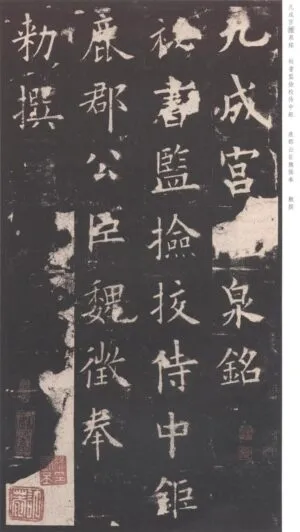 九成宫醴泉銘 祕書監檢校侍中鉅 鹿郡公臣魏徵奉 勅撰
九成宫 泉銘
祕書監撿挍侍中鉅
鹿郡公臣魏徵奉
勅撰